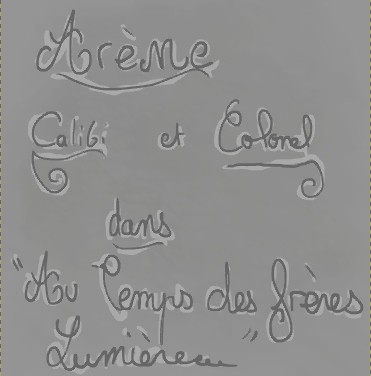 Arème
Calibi et Colonel
dans
"Au Temps des frères
Lumièreau"